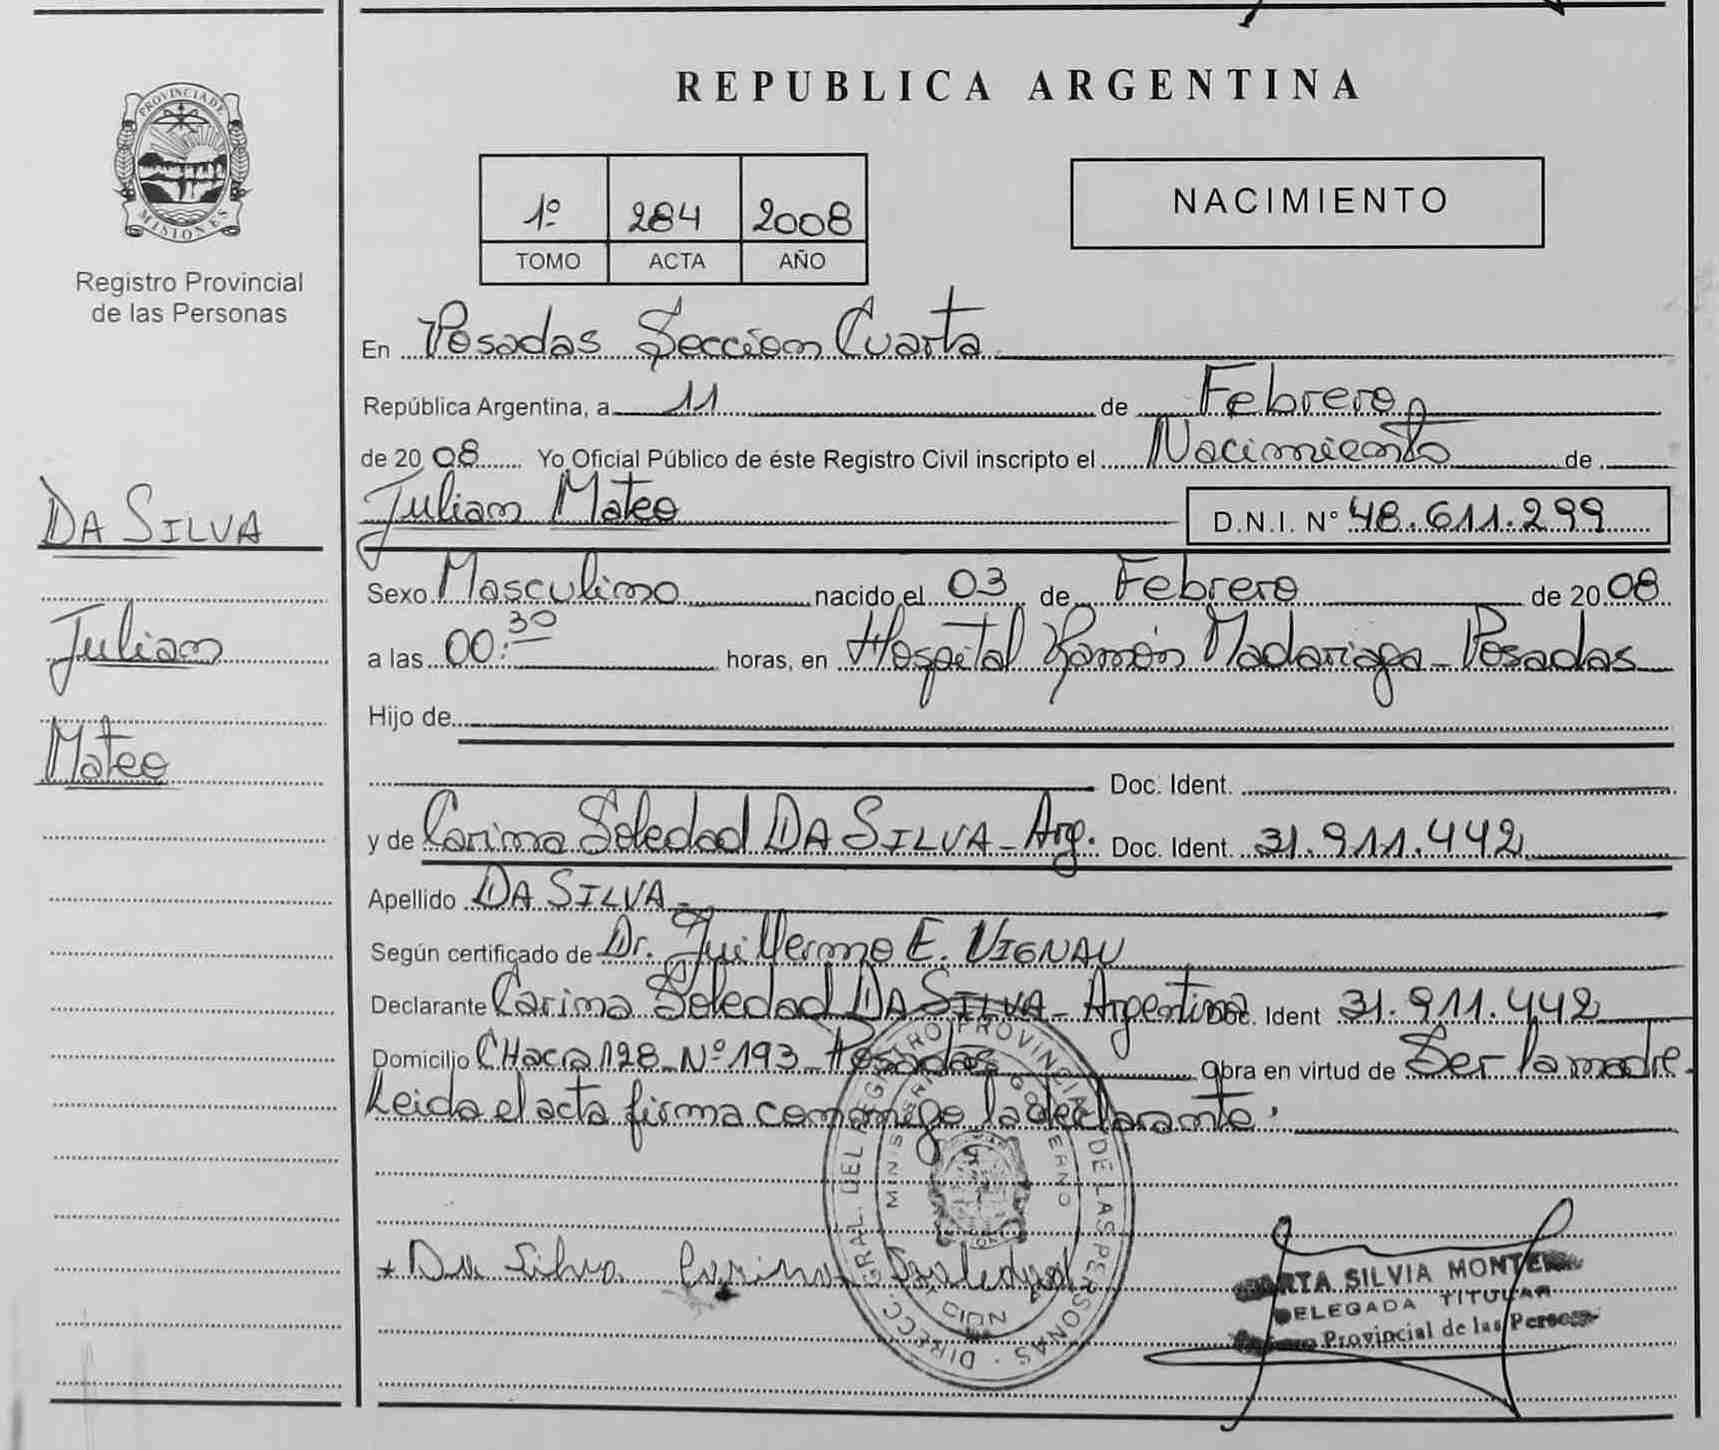 PROVINCIA DE
MISIONES
Registro Provincial
de las Personas
DA SILVA
Julian
Mateo
REPUBLICA ARGENTINA
1º 284 2008
TOMO ACTA AÑO
NACIMIENTO
En Posadas Seccion Cuarta
República Argentina, a 11 de Febrero
de 2008 Yo Oficial Público de éste Registro Civil inscripto el Nacimiento de
Julian Mateo D.N.I. Nº 48.611.299
Sexo Masculino nacido el 03 de Febrero de 2008
a las 00:30 horas, en Hospital Ramón Madariaga - Posadas
Hijo de
Doc. Ident.
y de Carina Soledad DA SILVA - Arg. Doc. Ident. 31.911.442
Apellido DA SILVA -
Según certificado de Dr. Guillermo E. VIGNAU
Declarante Carina Soledad DA SILVA - Argentina Doc. Ident 31.911.442
Domicilio CHacra 128 Nº 193 - Posadas Obra en virtud de Ser la madre -
Leida el acta firma conmigo la declarante.
DIRECC. GRAL. DEL REGISTRO PROVINCIAL DE LAS PERSONAS
MINISTERIO GOBIERNO
Da Silva Carina Soledad
SILVIA MONTE
DELEGADA TITULAR
Provincial de las Personas